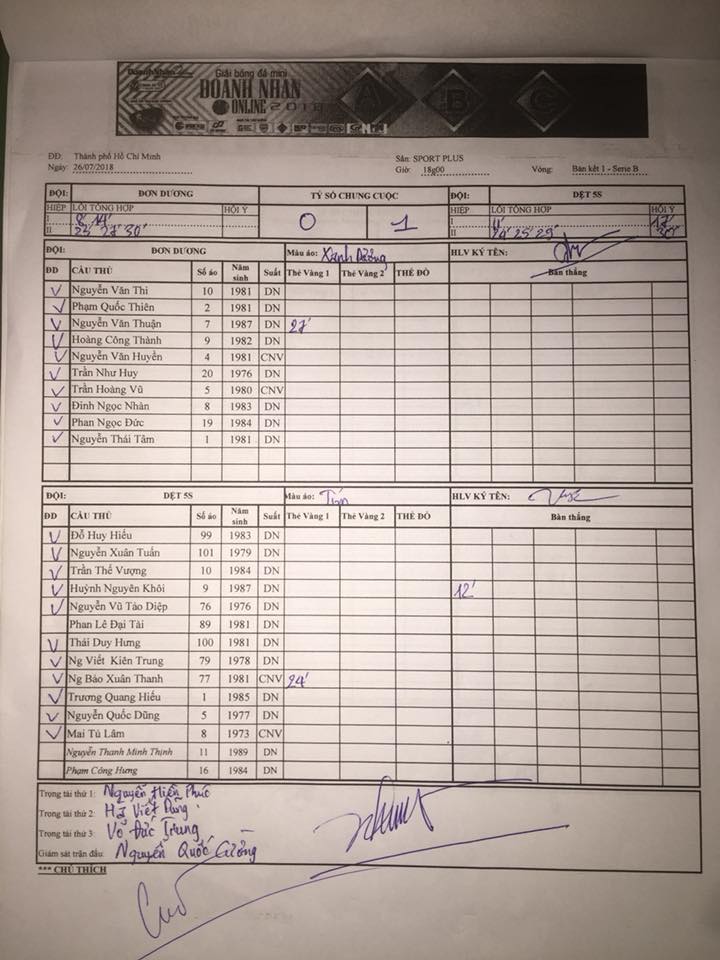 Giải bóng đá mini
DOANH NHÂN
ONLINE 2018
A B C
ĐĐ: Thành phố Hồ Chí Minh Sân: SPORT PLUS
Ngày: 26/07/2018 Giờ: 18g00 Vòng: Bán kết 1 - Serie B
ĐỘI: ĐƠN DƯƠNG TỶ SỐ CHUNG CUỘC ĐỘI: DỆT 5S
HIỆP LỖI TỔNG HỢP HỘI Ý 0 1 HIỆP LỖI TỔNG HỢP HỘI Ý
I 8' 14' I 11' 17'
II 25' 27' 30' II 24' 25' 29' 30'
ĐỘI: ĐƠN DƯƠNG Màu áo: Xanh Dương HLV KÝ TÊN:
ĐD CẦU THỦ Số áo Năm sinh Suất Thẻ Vàng 1 Thẻ Vàng 2 THẺ ĐỎ Bàn thắng
Nguyễn Văn Thi 10 1981 DN
Phạm Quốc Thiên 2 1981 DN
Nguyễn Văn Thuận 7 1987 DN 27'
Hoàng Công Thành 9 1982 DN
Nguyễn Văn Huyền 4 1981 CNV
Trần Như Huy 20 1976 DN
Trần Hoàng Vũ 5 1980 CNV
Đinh Ngọc Nhàn 8 1983 DN
Phan Ngọc Đức 19 1984 DN
Nguyễn Thái Tâm 1 1981 DN
ĐỘI: DỆT 5S Màu áo: Tím HLV KÝ TÊN:
ĐD CẦU THỦ Số áo Năm sinh Suất Thẻ Vàng 1 Thẻ Vàng 2 THẺ ĐỎ Bàn thắng
Đỗ Huy Hiếu 99 1983 DN
Nguyễn Xuân Tuấn 101 1979 DN
Trần Thế Vượng 10 1984 DN
Huỳnh Nguyên Khôi 9 1987 DN 12'
Nguyễn Vũ Tào Diệp 76 1976 DN
Phan Lê Đại Tài 89 1981 DN
Thái Duy Hưng 100 1981 DN
Ng Viết Kiên Trung 79 1978 DN
Ng Bảo Xuân Thanh 77 1981 CNV 24'
Trương Quang Hiếu 1 1985 DN
Nguyễn Quốc Dũng 5 1977 DN
Mai Tú Lâm 8 1973 CNV
Nguyễn Thanh Minh Thịnh 11 1989 DN
Phạm Công Hưng 16 1984 DN
Trọng tài thứ 1: Nguyễn Hiền Phúc
Trọng tài thứ 2: Hà Viết Dũng
Trọng tài thứ 3: Võ Đức Trung
Giám sát trận đấu: Nguyễn Quốc Cường
*** CHÚ THÍCH